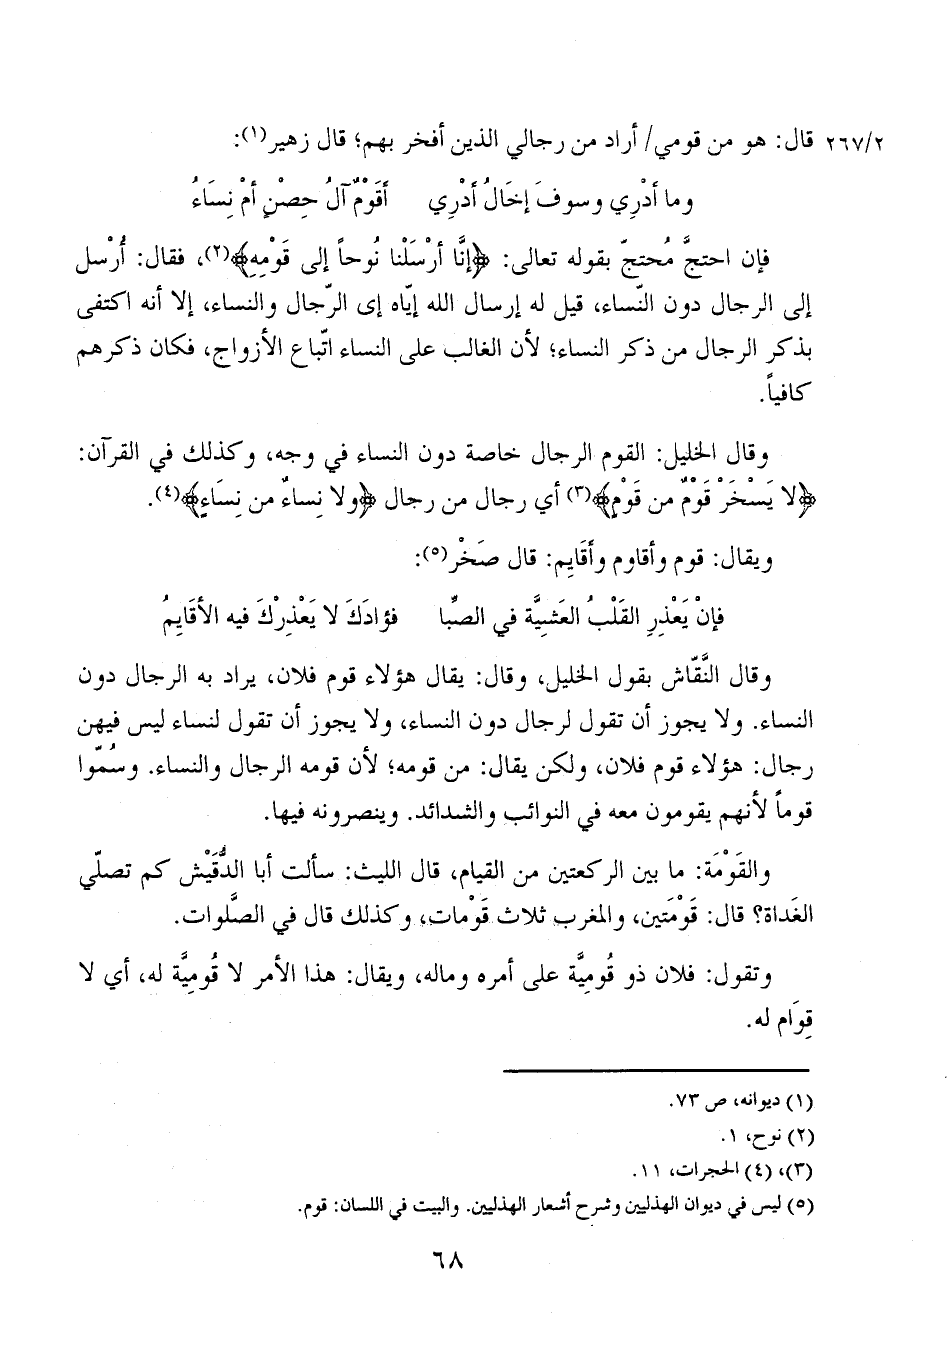 ٢٦٧/٢ قال: هو من قومي/ أراد من رجالي الذين أفخر بهم؛ قال زهير(١):
وما أدْرِي وسوفَ إخَالُ أدْرِي أَقَوْمٌ آلُ حِصْنٍ أمْ نِسَاءُ
فإن احتجَّ مُحتجّ بقوله تعالى: ﴿إنَّا أرْسَلْنا نُوحاً إلى قَوْمِهِ﴾(٢)، فقال: أُرْسل
إلى الرجال دون النّساء، قيل له إرسال الله إيّاه إى الرّجال والنساء، إلا أنه اكتفى
بذكر الرجال من ذكر النساء؛ لأن الغالب على النساء اتّباع الأزواج، فكان ذكرهم
كافياً.
وقال الخليل: القوم الرجال خاصة دون النساء في وجه، وكذلك في القرآن:
﴿لا يَسْخَرْ قَوْمٌ من قَوْمٍ﴾(٣) أي رجال من رجال ﴿ولا نِساءٌ من نِسَاءٍ﴾(٤).
ويقال: قوم وأقاوم وأَقَايِم: قال صَخْر(٥):
فإنْ يَعْذِرِ القَلْبُ العَشيَّة في الصِّبا فؤادَكَ لا يَعْذِرْكَ فيه الأقَايِمُ
وقال النَّقّاش بقول الخليل، وقال: يقال هؤلاء قوم فلان، يراد به الرجال دون
النساء. ولا يجوز أن تقول لرجال دون النساء، ولا يجوز أن تقول لنساء ليس فيهن
رجال: هؤلاء قوم فلان، ولكن يقال: من قومه؛ لأن قومه الرجال والنساء. وسُمّوا
قوماً لأنهم يقومون معه في النوائب والشدائد. وينصرونه فيها.
والقَوْمَة: ما بين الركعتين من القيام، قال الليث: سألت أبا الدُّقَيْش كم تصلّي
الغَداة؟ قال: قَوْمَتين، والمغرب ثلاث قَوْمات، وكذلك قال في الصَّلوات.
وتقول: فلان ذو قُوميَّة على أمره وماله، ويقال: هذا الأمر لا قُوميَّة له، أي لا
قِوَام له.
(١) ديوانه، ص ٧٣.
(٢) نوح، ١.
(٣)، (٤) الحجرات، ١١.
(٥) ليس في ديوان الهذليين وشرح أشعار الهذليين. والبيت في اللسان: قوم.
٦٨